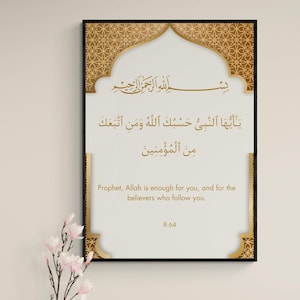 بِسْمِ اللَّهِ الرَّحْمَٰنِ الرَّحِيمِ
يَـٰٓأَيُّهَا ٱلنَّبِىُّ حَسْبُكَ ٱللَّهُ وَمَنِ ٱتَّبَعَكَ
مِنَ ٱلْمُؤْمِنِينَ
Prophet, Allah is enough for you, and for the
believers who follow you.
8:64